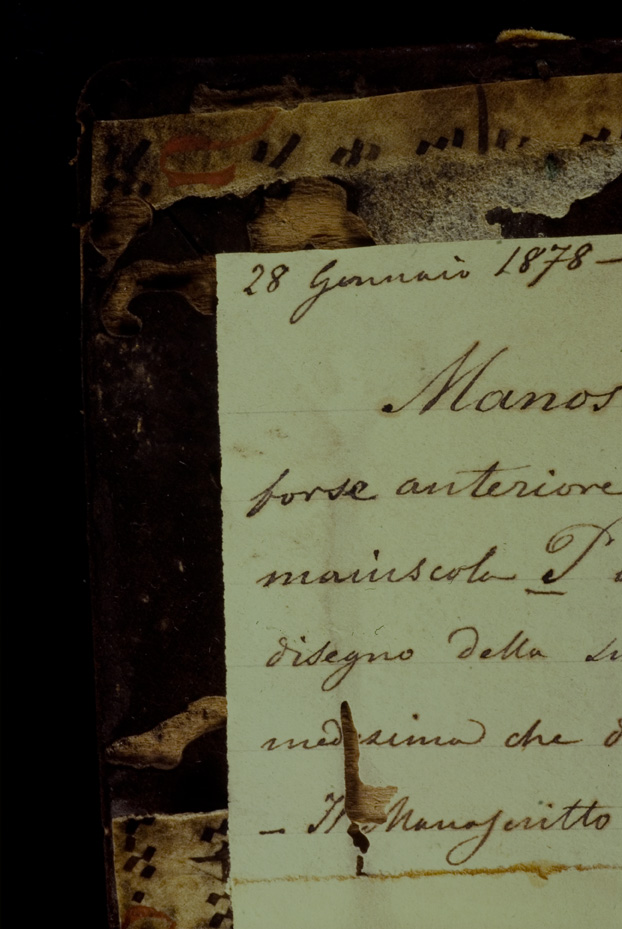 28 Gennaio 1878 –
Manos
forse anteriore
maiuscola P
disegno della su
medesima che d
– Il Manoscritto